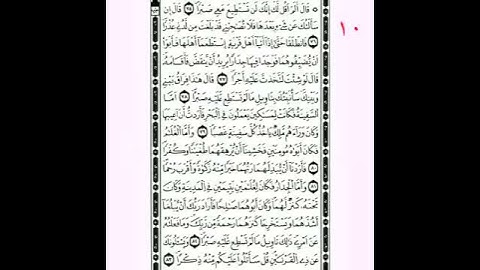 ۞ قَالَ أَلَمْ أَقُل لَّكَ إِنَّكَ لَن تَسْتَطِيعَ مَعِيَ صَبْرًا ٧٥ قَالَ إِن
سَأَلْتُكَ عَن شَيْءٍ بَعْدَهَا فَلَا تُصَاحِبْنِي قَدْ بَلَغْتَ مِن لَّدُنِّي عُذْرًا
٧٦ فَانطَلَقَا حَتَّىٰ إِذَا أَتَيَا أَهْلَ قَرْيَةٍ اسْتَطْعَمَا أَهْلَهَا فَأَبَوْا
أَن يُضَيِّفُوهُمَا فَوَجَدَا فِيهَا جِدَارًا يُرِيدُ أَن يَنقَضَّ فَأَقَامَهُ
قَالَ لَوْ شِئْتَ لَتَّخَذْتَ عَلَيْهِ أَجْرًا ٧٧ قَالَ هَٰذَا فِرَاقُ بَيْنِي
وَبَيْنِكَ سَأُنَبِّئُكَ بِتَأْوِيلِ مَا لَمْ تَسْتَطِع عَّلَيْهِ صَبْرًا ٧٨ أَمَّا
السَّفِينَةُ فَكَانَتْ لِمَسَاكِينَ يَعْمَلُونَ فِي الْبَحْرِ فَأَرَدتُّ أَنْ أَعِيبَهَا
وَكَانَ وَرَاءَهُم مَّلِكٌ يَأْخُذُ كُلَّ سَفِينَةٍ غَصْبًا ٧٩ وَأَمَّا الْغُلَامُ
فَكَانَ أَبَوَاهُ مُؤْمِنَيْنِ فَخَشِينَا أَن يُرْهِقَهُمَا طُغْيَانًا وَكُفْرًا
٨٠ فَأَرَدْنَا أَن يُبْدِلَهُمَا رَبُّهُمَا خَيْرًا مِّنْهُ زَكَاةً وَأَقْرَبَ رُحْمًا
٨١ وَأَمَّا الْجِدَارُ فَكَانَ لِغُلَامَيْنِ يَتِيمَيْنِ فِي الْمَدِينَةِ وَكَانَ
تَحْتَهُ كَنزٌ لَّهُمَا وَكَانَ أَبُوهُمَا صَالِحًا فَأَرَادَ رَبُّكَ أَن يَبْلُغَا
أَشُدَّهُمَا وَيَسْتَخْرِجَا كَنزَهُمَا رَحْمَةً مِّن رَّبِّكَ وَمَا فَعَلْتُهُ
عَنْ أَمْرِي ذَٰلِكَ تَأْوِيلُ مَا لَمْ تَسْطِع عَّلَيْهِ صَبْرًا ٨٢ وَيَسْأَلُونَكَ
عَن ذِي الْقَرْنَيْنِ قُلْ سَأَتْلُو عَلَيْكُم مِّنْهُ ذِكْرًا ٨٣
١٠